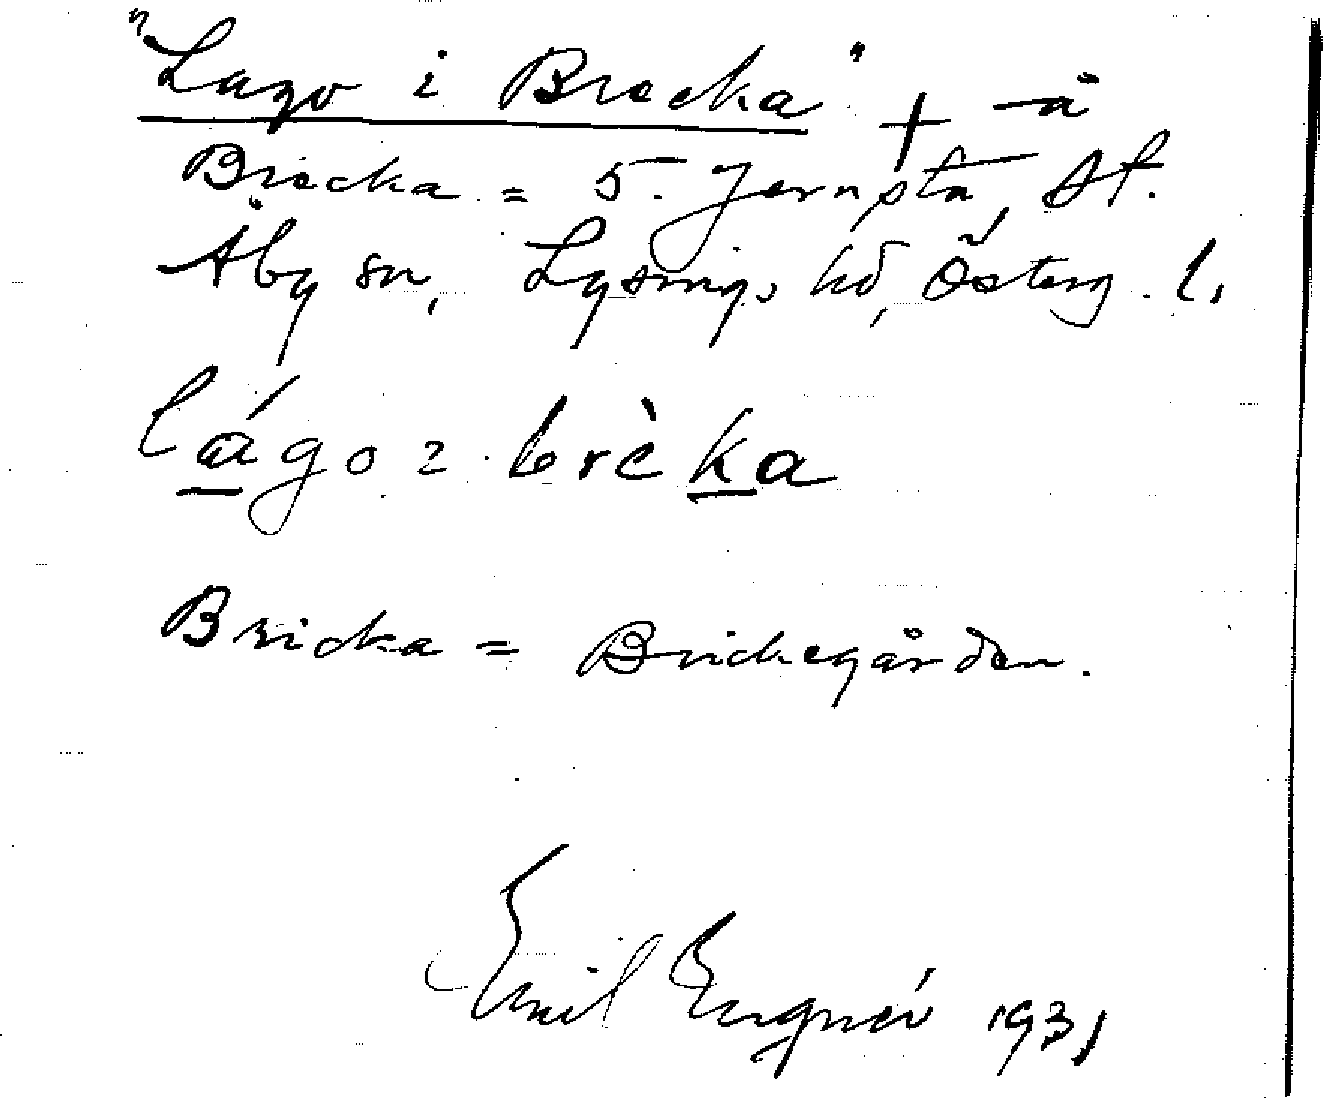 "Lugo i Brecka" + –å
Brecka = 5. Jernsta, St.
Åby sn, Lysings hd, Österg. l.
lágo i brèka
Bricka = Brickegården.
Emil 1931